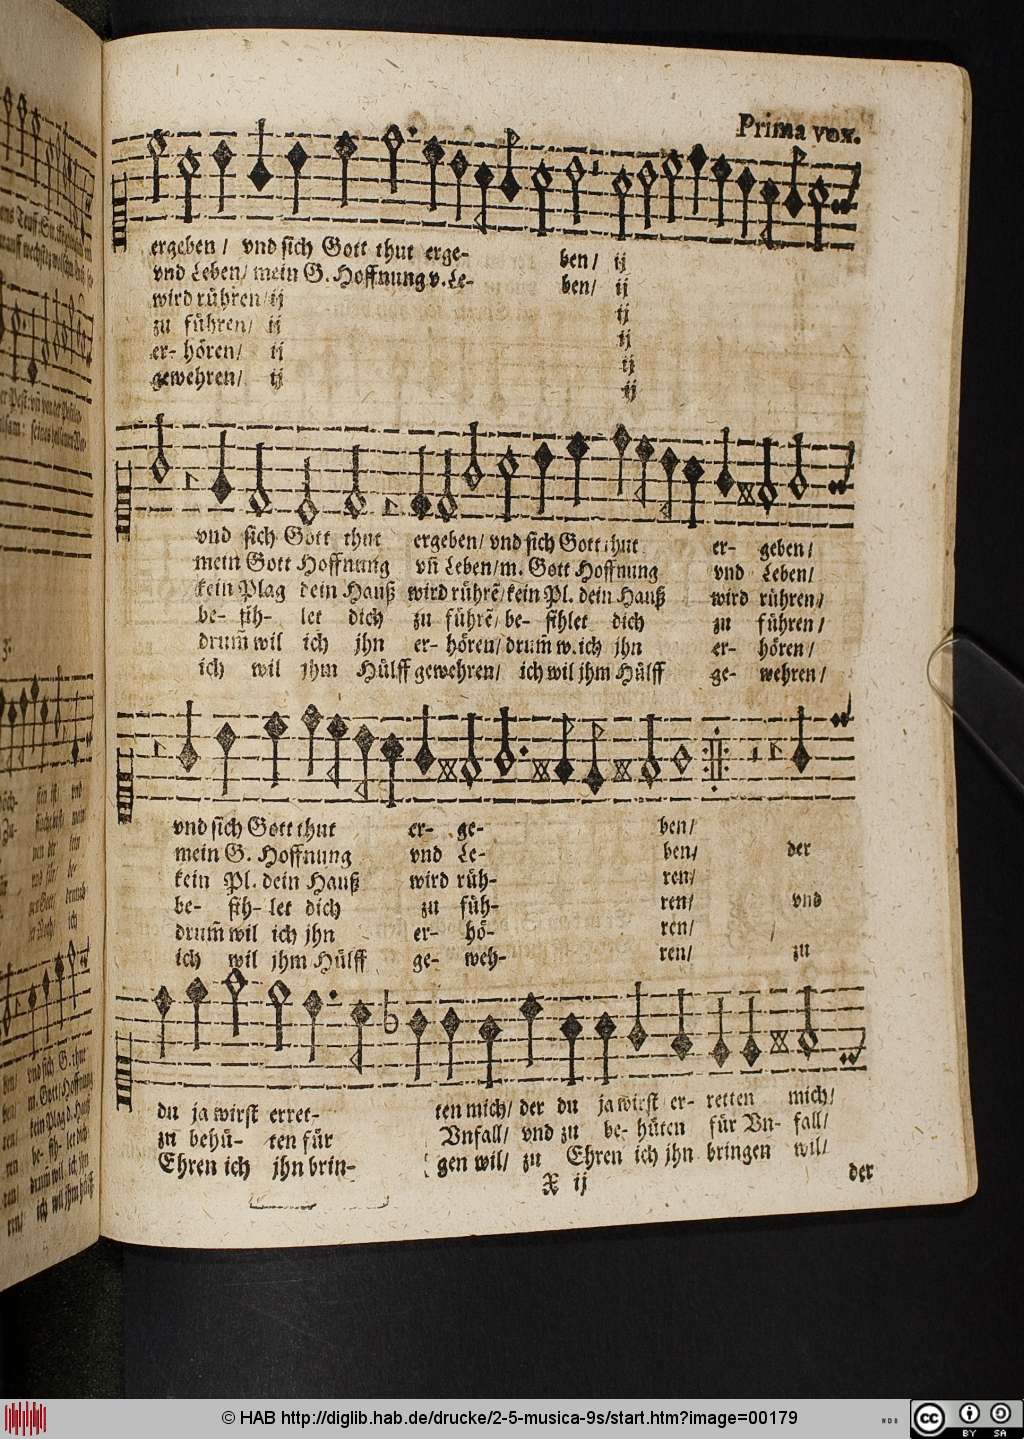 Prima vox.
ergeben / vnd sich Gott thut erge- ben / ij
vnd Leben / mein G. Hoffnung v. Le- ben / ij
wird rühren / ij ij
zu führen / ij ij
er- hören / ij ij
gewehren / ij ij
vnd sich Gott thut ergeben / vnd sich Gott thut er- geben /
mein Gott Hoffnung vñ Leben / m. Gott Hoffnung vnd Leben /
kein Plag dein Hauß wird rührẽ / kein Pl. dein Hauß wird rühren /
be- fih- let dich zu führẽ / be- fihlet dich zu führen /
drum̃ wil ich jhn er- hören / drum̃ w. ich jhn er- hören /
ich wil jhm Hülff gewehren / ich wil jhm Hülff ge- wehren /
vnd sich Gott thut er- ge- ben /
mein G. Hoffnung vnd Le- ben / der
kein Pl. dein Hauß wird rüh- ren /
be- fih- let dich zu füh- ren / vnd
drum̃ wil ich jhn er- hö- ren / /
ich wil jhm Hülff ge- weh- ren / zu
du ja wirst erret- ten mich / der du ja wirst er- retten mich /
zu behü- ten für Vnfall / vnd zu be- hüten für Vn- fall /
Ehren ich jhn brin- gen wil / zu Ehren ich jhn bringen wil /
X ij der
© HAB http://diglib.hab.de/drucke/2-5-musica-9s/start.htm?image=00179
cc BY SA